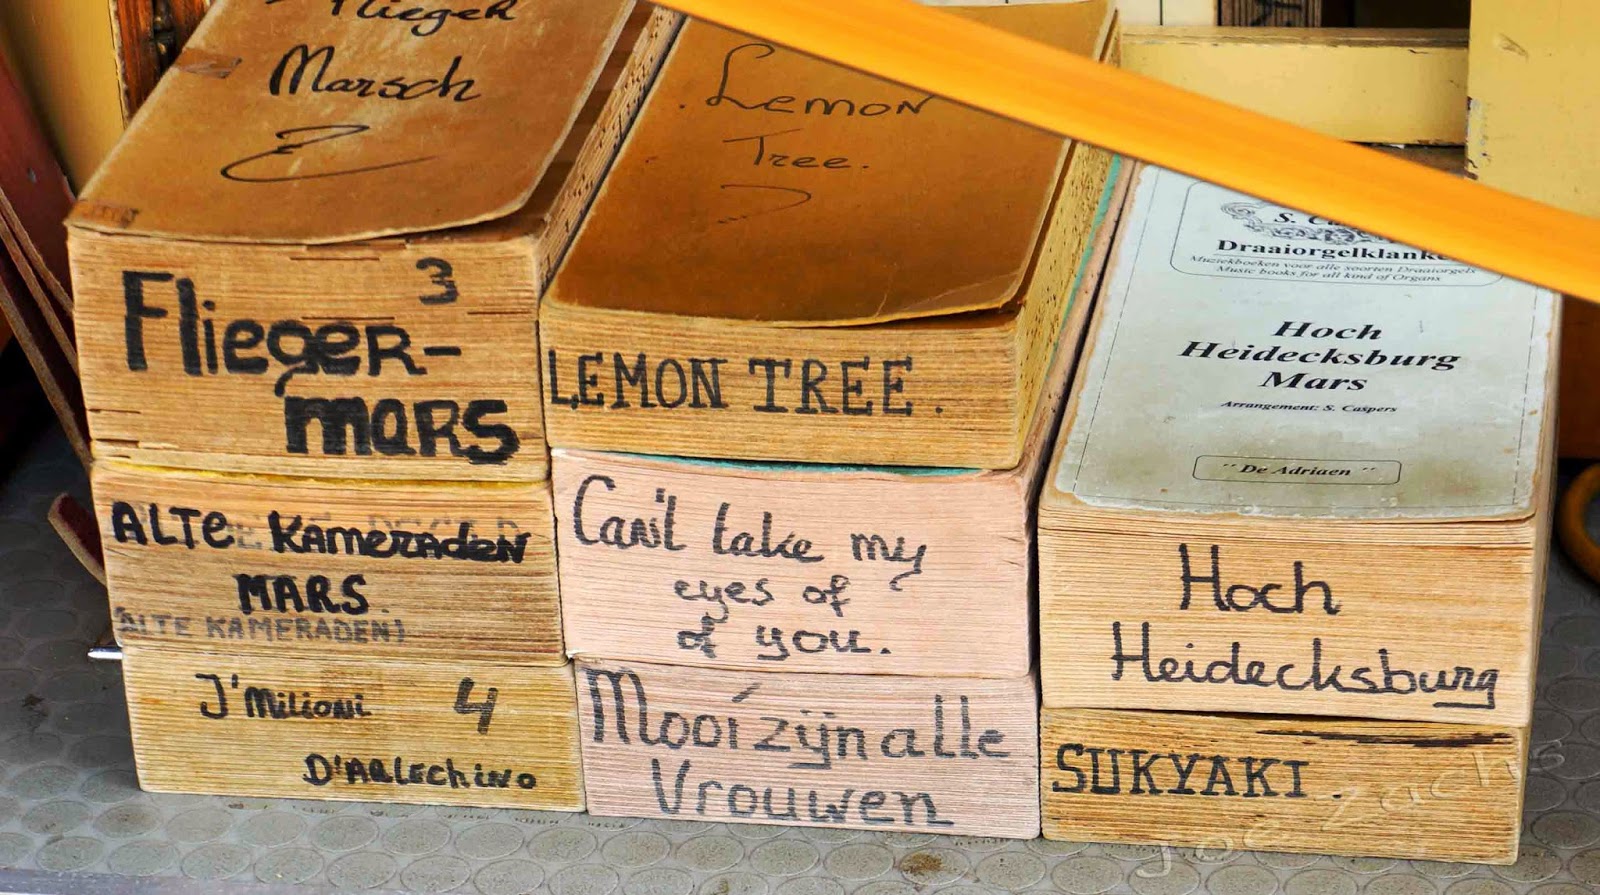 Flieger
Marsch
Flieger-
3
mars
ALTE KAMERADEN
MARS.
(ALTE KAMERADEN)
J' Milioni 4
D'ARLECHINO
Lemon
Tree.
LEMON TREE.
Can't take my
eyes of
of you.
Mooi zijn alle
Vrouwen
Draaiorgelklanke
Muziekboeken voor alle soorten Draaiorgels
Music books for all kind of Organs
Hoch
Heidecksburg
Mars
Arrangement: S. Caspers
" De Adriaen "
Hoch
Heidecksburg
SUKYAKI.
Joe Zachs